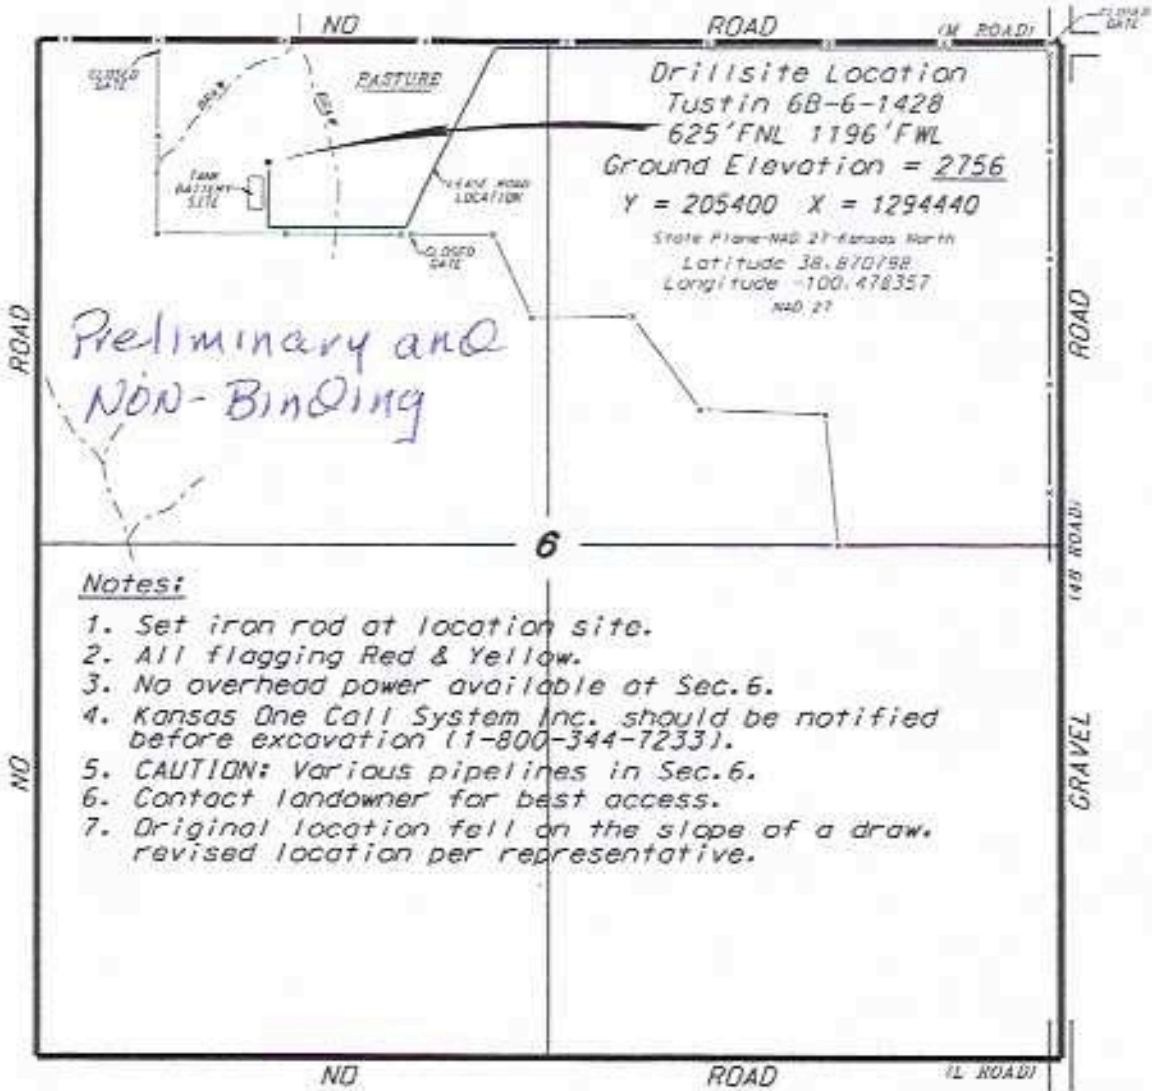 NO ROAD (M ROAD)
CLOSED GATE
CLOSED GATE
DRAW
DRAW
PASTURE
Drillsite Location
Tustin 6B-6-1428
625'FNL 1196'FWL
Ground Elevation = 2756
Y = 205400 X = 1294440
State Plane-NAD 27-Kansas North
Latitude 38.870798
Longitude -100.478357
NAD 27
TANK
BATTERY
SITE
LEASE ROAD
LOCATION
CLOSED
GATE
Preliminary and
NON-Binding
ROAD
ROAD
6
(48 ROAD)
Notes:
1. Set iron rod at location site.
2. All flagging Red & Yellow.
3. No overhead power available at Sec.6.
4. Kansas One Call System Inc. should be notified
before excavation (1-800-344-7233).
5. CAUTION: Various pipelines in Sec.6.
6. Contact landowner for best access.
7. Original location fell on the slope of a draw.
revised location per representative.
NO
GRAVEL
NO ROAD (L ROAD)